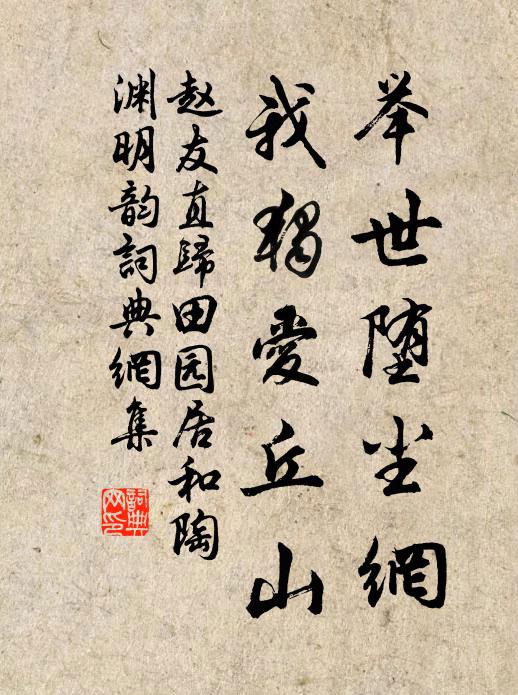 举世堕尘網
我独愛丘山
赵友直歸田园居和陶
渊明韵詞典網集
詞典
网印